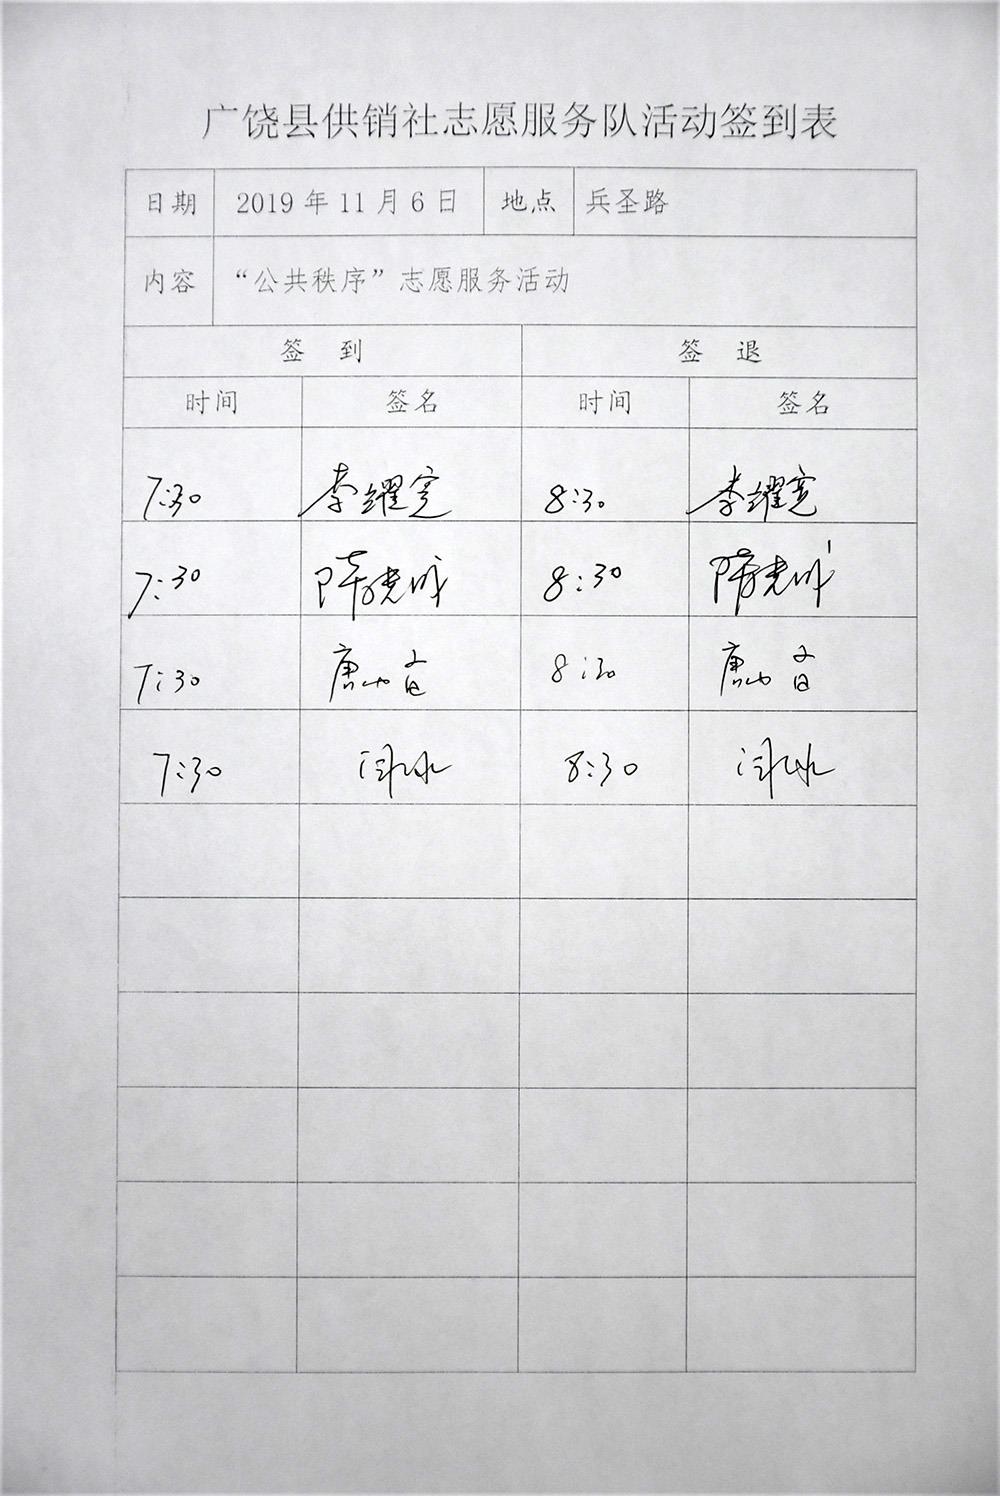 广饶县供销社志愿服务队活动签到表
日期 2019年11月6日 地点 兵圣路
内容 “公共秩序”志愿服务活动
签 到 签 退
时间 签名 时间 签名
7:30 李耀宽 8:30 李耀宽
7:30 隋 8:30 隋
7:30 唐 8:30 唐
7:30 闫 8:30 闫